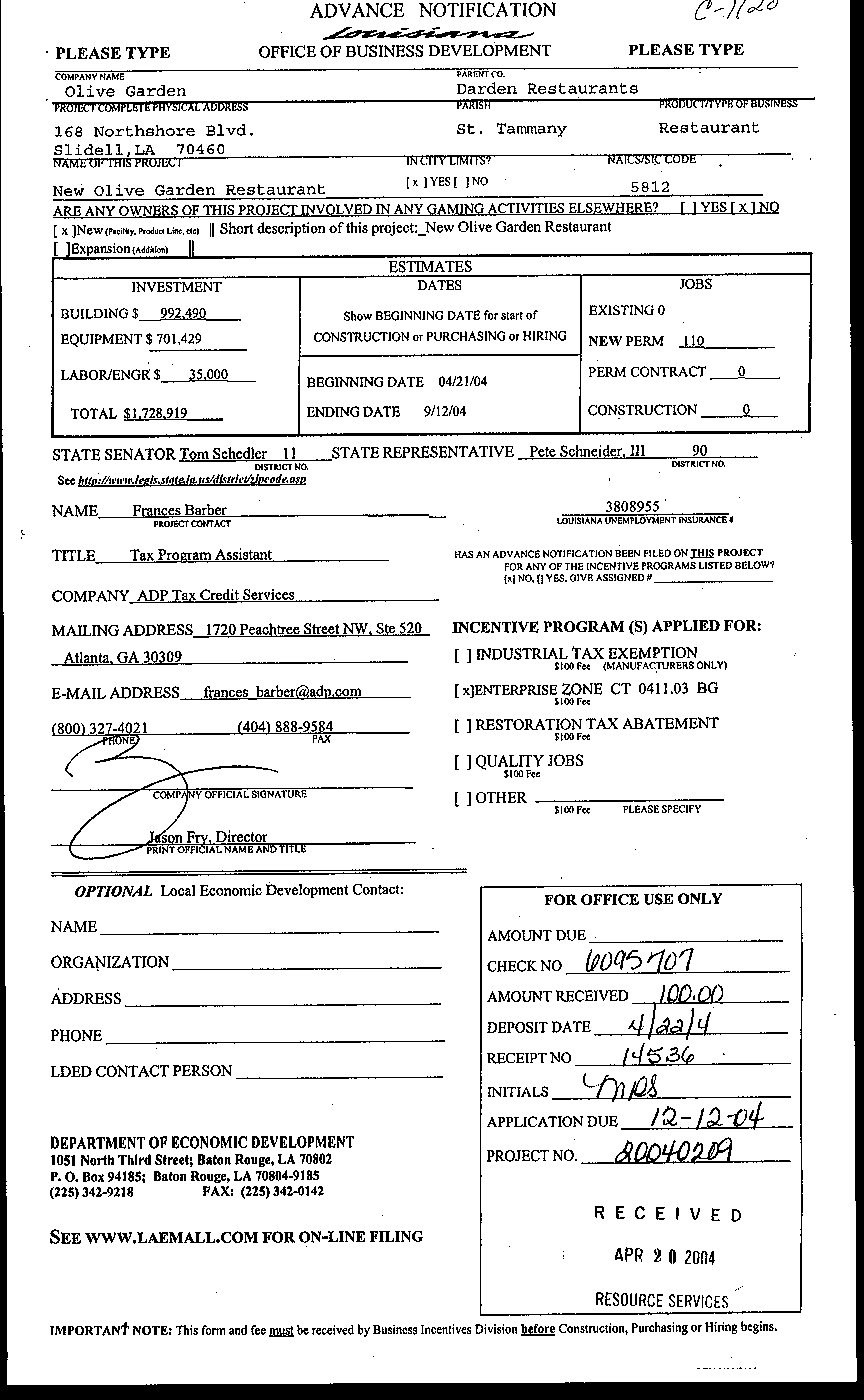 ADVANCE NOTIFICATION
C-1120
Louisiana
PLEASE TYPE OFFICE OF BUSINESS DEVELOPMENT PLEASE TYPE
COMPANY NAME PARENT CO.
Olive Garden Darden Restaurants
PROJECT COMPLETE PHYSICAL ADDRESS PARISH PRODUCT/TYPE OF BUSINESS
168 Northshore Blvd. St. Tammany Restaurant
Slidell, LA 70460
NAME OF THIS PROJECT IN CITY LIMITS? NAICS/SIC CODE
New Olive Garden Restaurant [x]YES[ ]NO 5812
ARE ANY OWNERS OF THIS PROJECT INVOLVED IN ANY GAMING ACTIVITIES ELSEWHERE? [ ] YES [x] NO
[ x ]New (Facility, Product Line, etc) || Short description of this project:_New Olive Garden Restaurant
[ ]Expansion (Addition) ||
ESTIMATES
INVESTMENT DATES JOBS
BUILDING $ 992,490 Show BEGINNING DATE for start of EXISTING 0
EQUIPMENT $ 701,429 CONSTRUCTION or PURCHASING or HIRING NEW PERM 110
LABOR/ENGR $ 35,000 BEGINNING DATE 04/21/04 PERM CONTRACT 0
TOTAL $1,728,919 ENDING DATE 9/12/04 CONSTRUCTION 0
STATE SENATOR Tom Schedler 11 STATE REPRESENTATIVE Pete Schneider, III 90
DISTRICT NO. DISTRICT NO.
See http://www.legis.state.la.us/district/zipcode.asp
NAME Frances Barber 3808955
PROJECT CONTACT LOUISIANA UNEMPLOYMENT INSURANCE #
TITLE Tax Program Assistant
HAS AN ADVANCE NOTIFICATION BEEN FILED ON THIS PROJECT
FOR ANY OF THE INCENTIVE PROGRAMS LISTED BELOW?
[x] NO, [] YES, GIVE ASSIGNED #
COMPANY ADP Tax Credit Services
MAILING ADDRESS 1720 Peachtree Street NW, Ste 520
Atlanta, GA 30309
E-MAIL ADDRESS frances_barber@adp.com
(800) 327-4021 (404) 888-9584
PHONE FAX
COMPANY OFFICIAL SIGNATURE
Jason Fry, Director
PRINT OFFICIAL NAME AND TITLE
INCENTIVE PROGRAM (S) APPLIED FOR:
[ ] INDUSTRIAL TAX EXEMPTION
$100 Fee (MANUFACTURERS ONLY)
[x]ENTERPRISE ZONE CT 0411.03 BG
$100 Fee
[ ] RESTORATION TAX ABATEMENT
$100 Fee
[ ] QUALITY JOBS
$100 Fee
[ ] OTHER
$100 Fee PLEASE SPECIFY
OPTIONAL Local Economic Development Contact:
NAME
ORGANIZATION
ADDRESS
PHONE
LDED CONTACT PERSON
FOR OFFICE USE ONLY
AMOUNT DUE
CHECK NO 6095707
AMOUNT RECEIVED 100.00
DEPOSIT DATE 4/22/4
RECEIPT NO 14536
INITIALS MRS
APPLICATION DUE 12-12-04
PROJECT NO. 20040209
RECEIVED
APR 20 2004
RESOURCE SERVICES
DEPARTMENT OF ECONOMIC DEVELOPMENT
1051 North Third Street; Baton Rouge, LA 70802
P. O. Box 94185; Baton Rouge, LA 70804-9185
(225) 342-9218 FAX: (225) 342-0142
SEE WWW.LAEMALL.COM FOR ON-LINE FILING
IMPORTANT NOTE: This form and fee must be received by Business Incentives Division before Construction, Purchasing or Hiring begins.